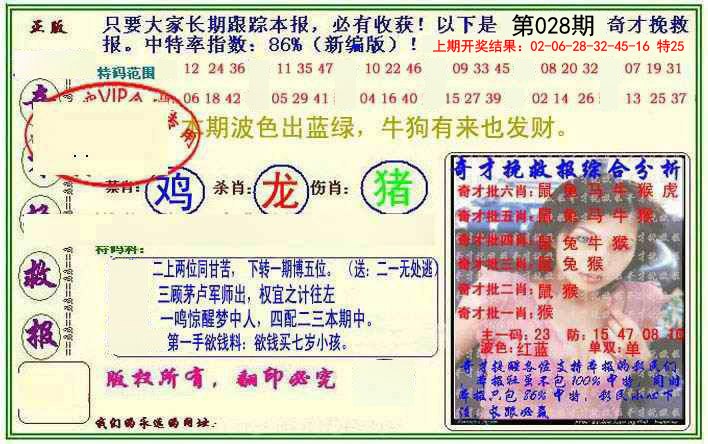 正版
只要大家长期跟踪本报，必有收获！以下是 第028期 奇才挽救
报。中特率指数：86%（新编版）！ 上期开奖结果：02-06-28-32-45-16 特25
特码范围 12 24 36 11 35 47 10 22 46 09 33 45 08 20 32 07 19 31
06 18 42 05 29 41 04 16 40 15 27 39 02 14 26 13 25 37
VIP
专用
本期波色出蓝绿，牛狗有来也发财。
禁肖： 鸡 杀肖： 龙 伤肖： 猪
二上两位同甘苦，下转一期博五位。（送：二一无处逃）
三顾茅卢军师出，权宜之计往左
一鸣惊醒梦中人，四配二三本期中。
第一手欲钱料：欲钱买七岁小孩。
救
报
版权所有，翻印必究
我们的永远的网址：
奇才挽救报综合分析
奇才批六肖：鼠 兔 马 牛 猴 虎
奇才批五肖：鼠 兔 马 牛 猴
奇才批四肖：鼠 兔 牛 猴
奇才批三肖：鼠 兔 猴
奇才批二肖：鼠 猴
奇才批一肖：猴
主一码：23 防：15 47 08 10
波色：红蓝 单双：单
奇才挽救各位支持本报的彩民们
本报组虽不包100%中特，同时
本报只包86%中特，彩民小心下
注，长跟必赢